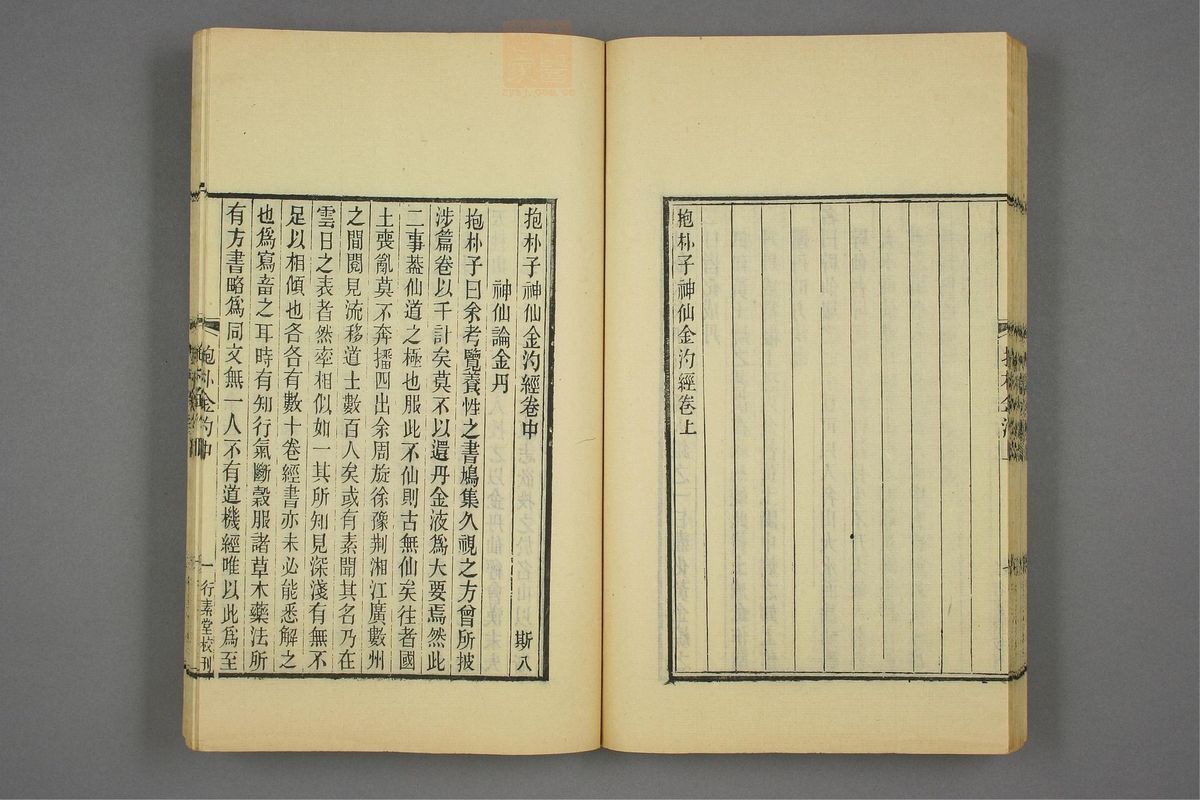 抱朴子神仙金汋經卷上
抱朴子神仙金汋經卷中
斯八
神仙論金丹
抱朴子曰余考覽養性之書鳩集久視之方曾所披
涉篇卷以千計矣莫不以還丹金液爲大要焉然此
二事葢仙道之極也服此不仙則古無仙矣往者國
土喪亂莫不奔播四出余周旋徐豫荆湘江廣數州
之間閱見流移道士數百人矣或有素聞其名乃在
雲日之表者然率相似如一其所知見深淺有無不
足以相傾也各各有數十卷經書亦未必能悉解之
也爲寫畜之耳時有知行氣斷榖服諸草木藥法所
有方書略爲同文無一人不有道機經唯以此爲至
抱朴金汋中
一
行素堂校刊